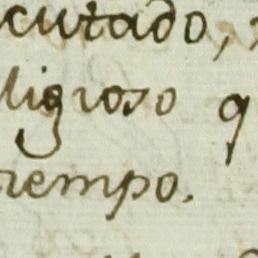 cutado,
ligioso q
iempo.